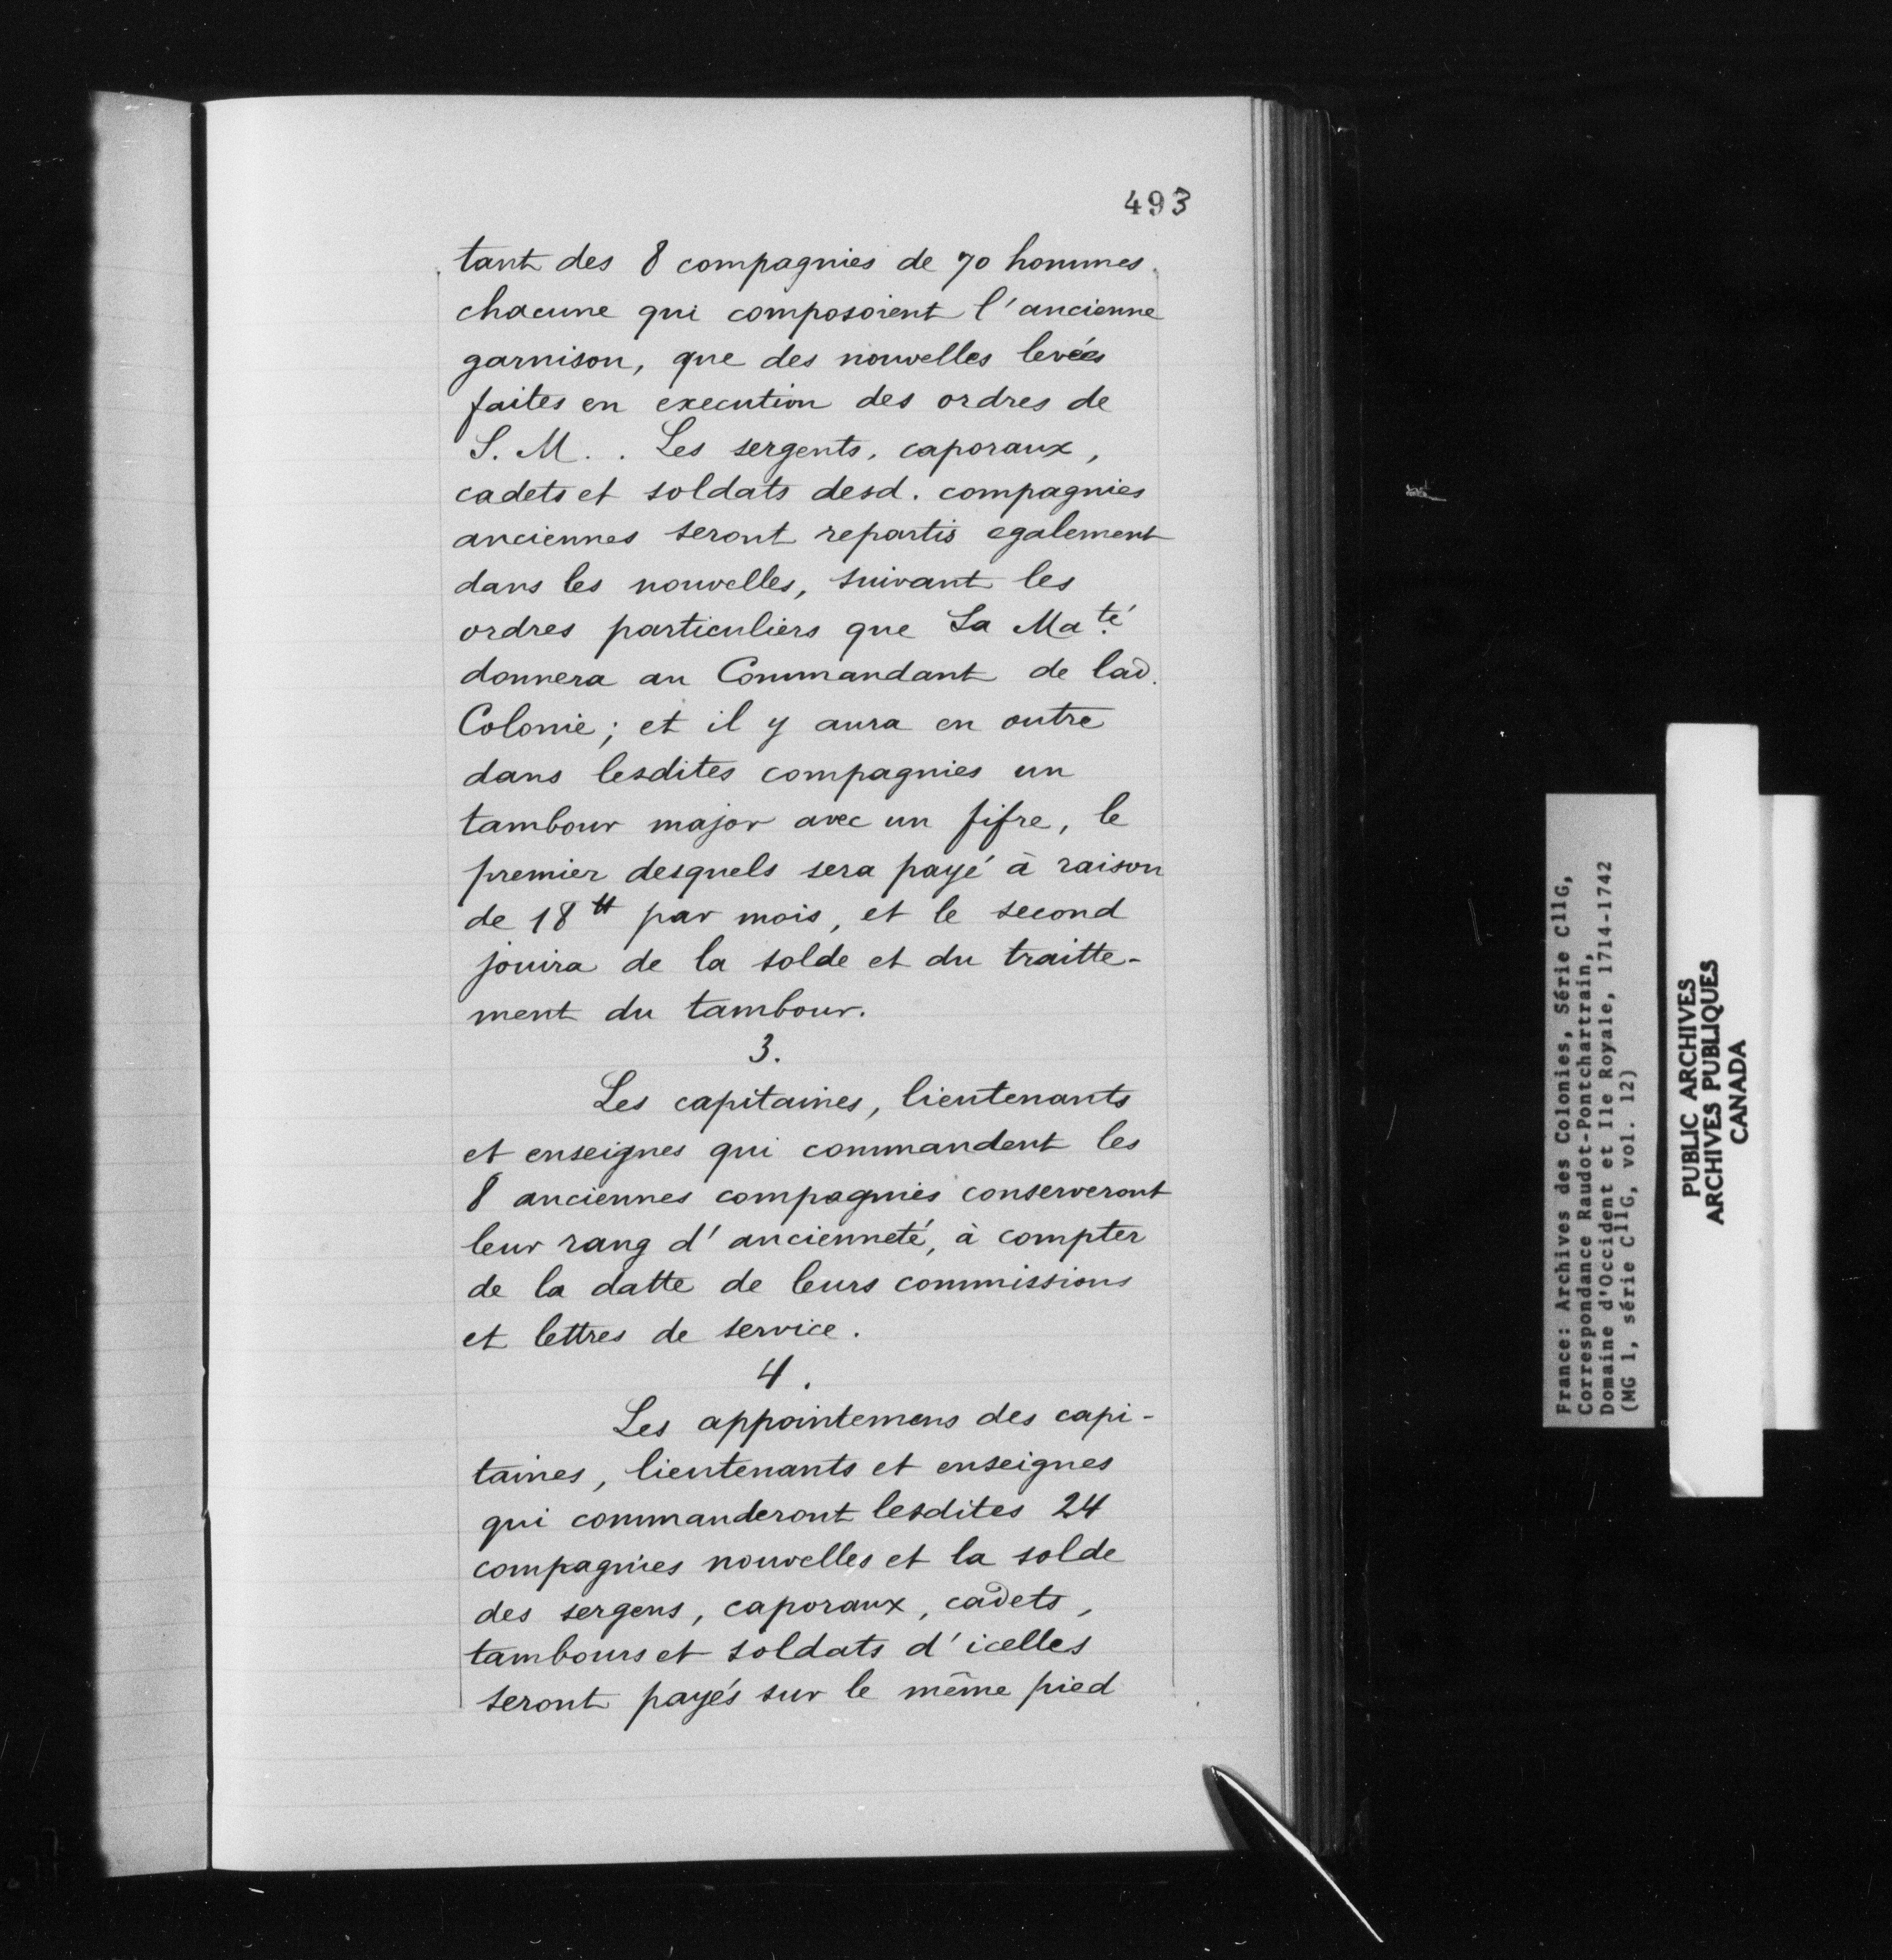 493
tant des 8 compagnies de 70 hommes
chacune qui composoient l'ancienne
garnison, que des nouvelles levées
faites en execution des ordres de
S. M. . Les sergents, caporaux,
cadets et soldats desd. compagnies
anciennes seront repartis egalement
dans les nouvelles, suivant les
ordres particuliers que Sa Ma.té
donnera au Commandant de lad.
Colonie; et il y aura en outre
dans lesdites compagnies un
tambour major avec un fifre, le
premier desquels sera payé à raison
de 18 tt par mois, et le second
jouira de la solde et du traitte-
ment du tambour.
3.
Les capitaines, lieutenants
et enseignes qui commandent les
8 anciennes compagnies conserveront
leur rang d'ancienneté, à compter
de la datte de leurs commissions
et lettres de service.
4.
Les appointemens des capi-
taines, lieutenants et enseignes
qui commanderont lesdites 24
compagnies nouvelles et la solde
des sergens, caporaux, cadets,
tambours et soldats d'icelles
seront payés sur le même pied
France: Archives des Colonies, Série C11G,
Correspondance Raudot-Pontchartrain,
Domaine d'Occident et Ile Royale, 1714-1742
(MG 1, série C11G, vol. 12)
PUBLIC ARCHIVES
ARCHIVES PUBLIQUES
CANADA